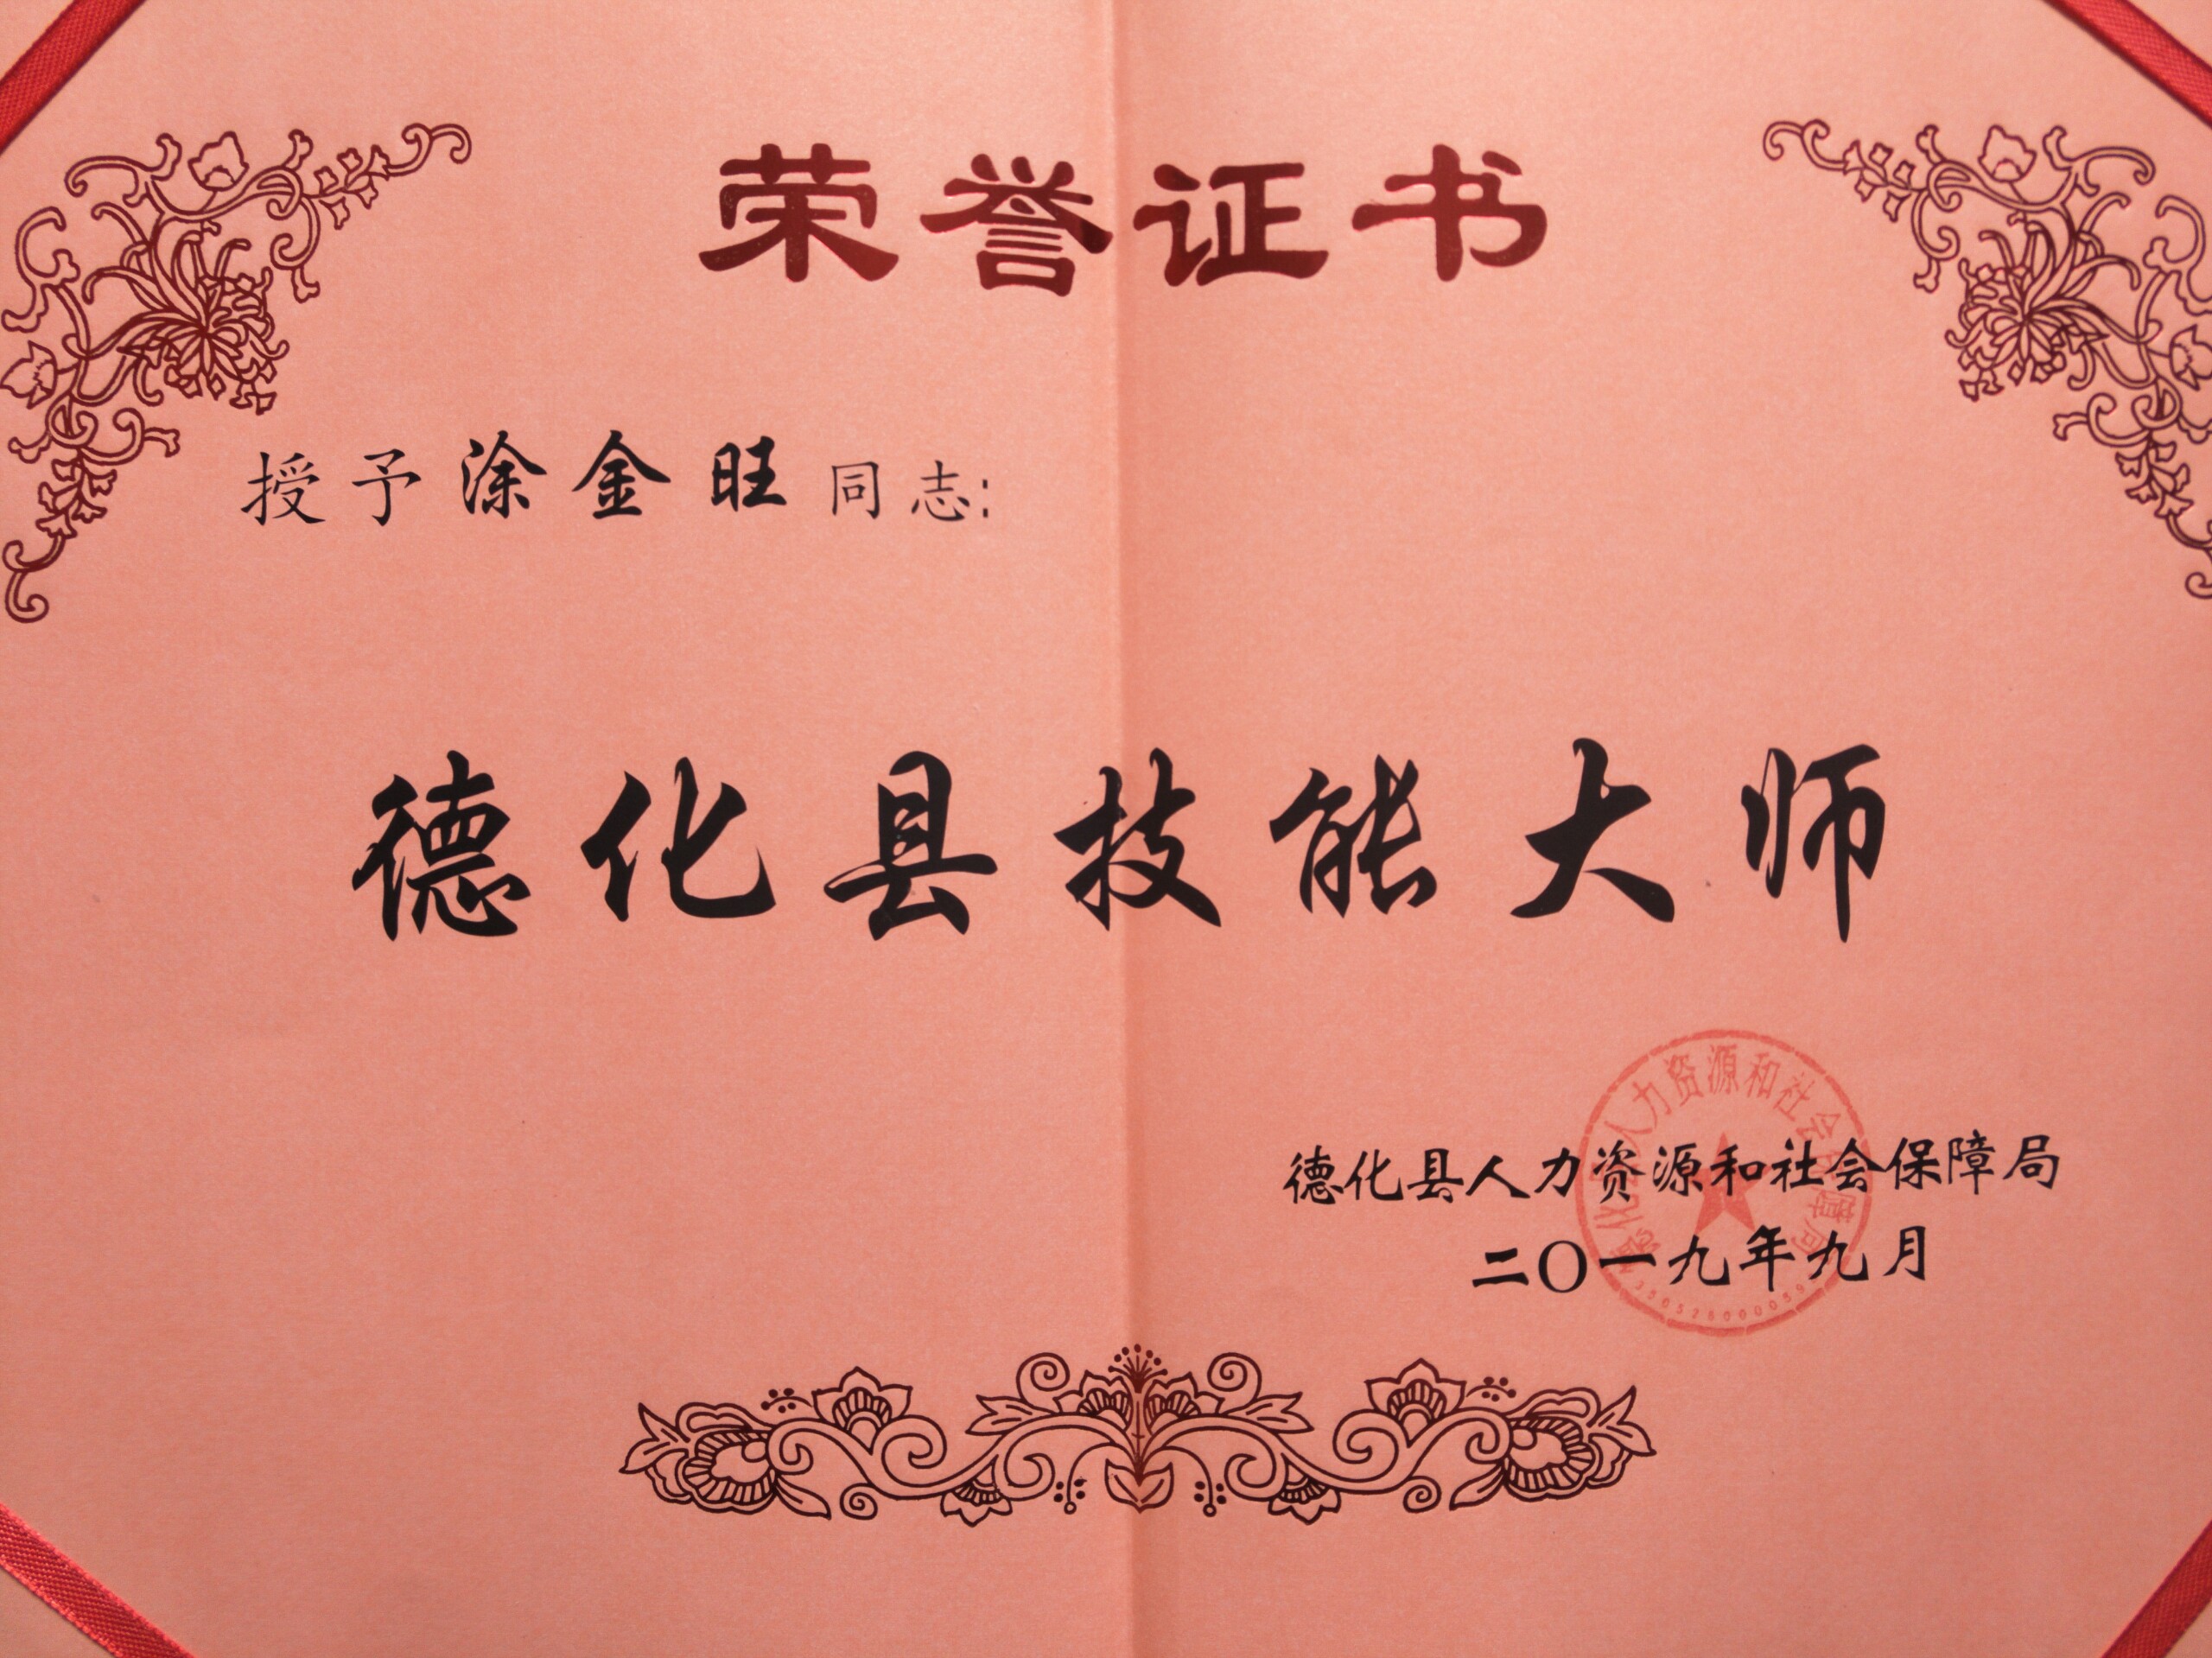 荣誉证书
授予涂金旺同志:
德化县技能大师
德化县人力资源和社会保障局
二〇一九年九月